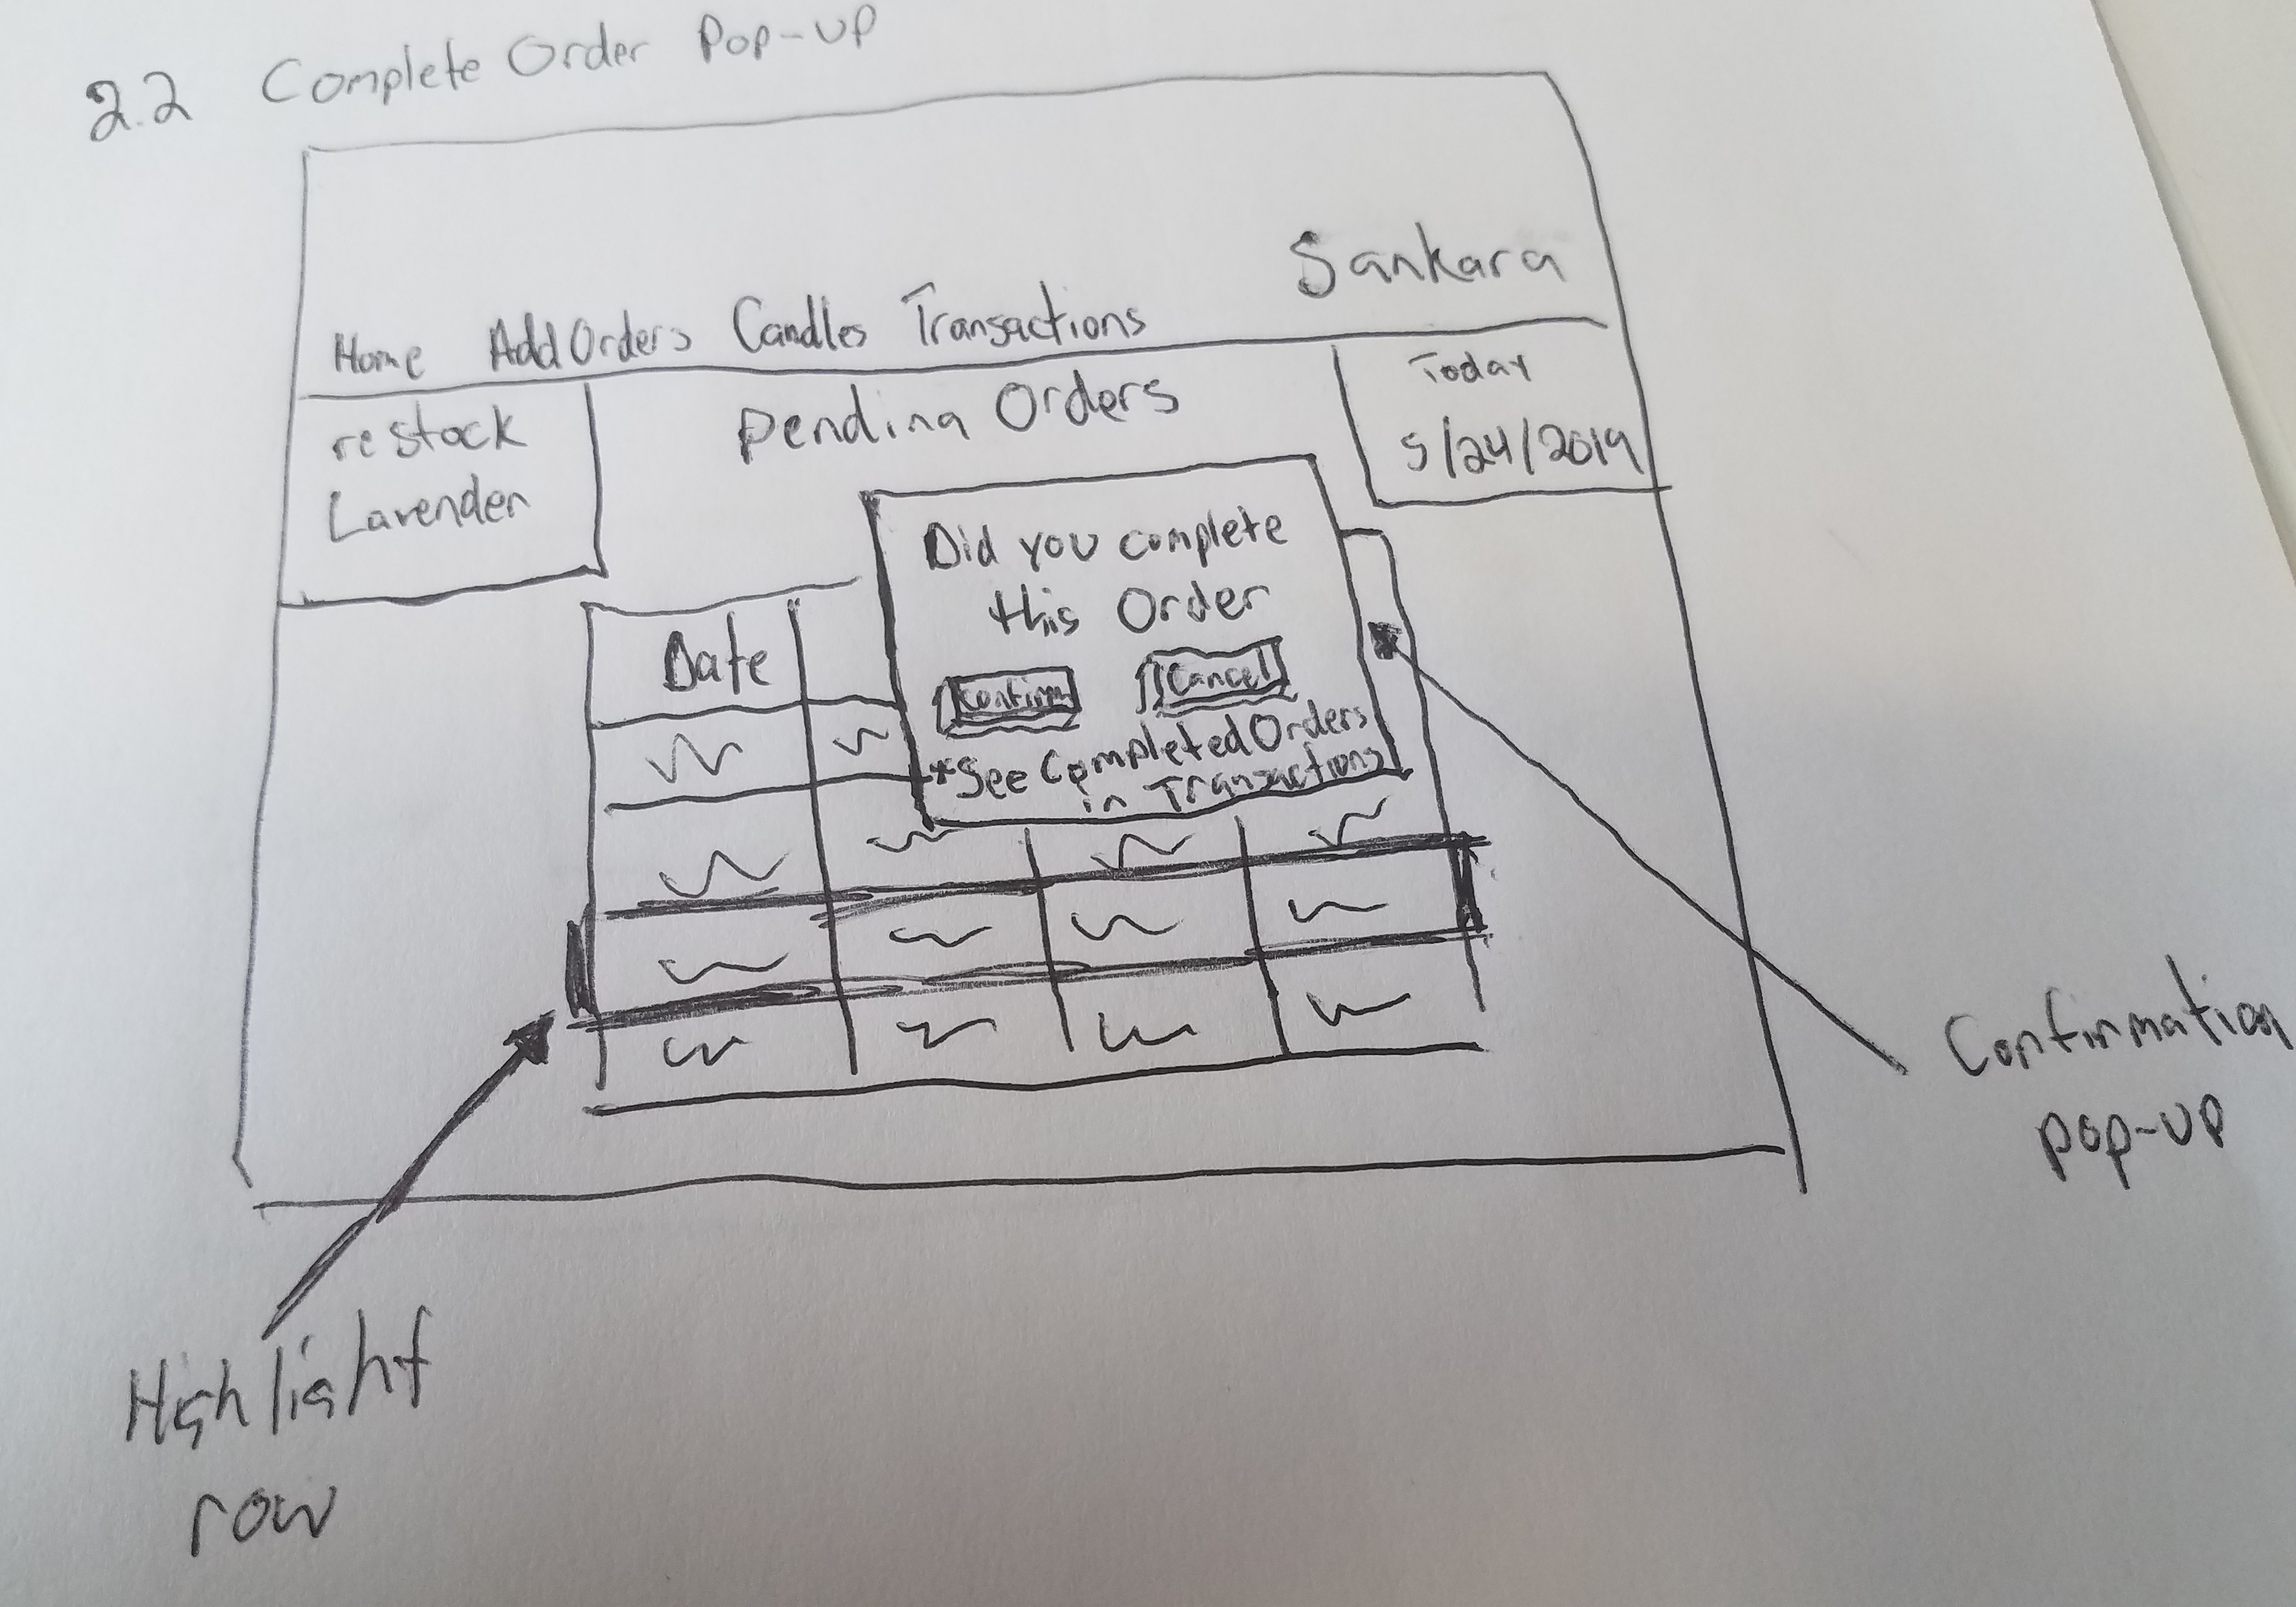 2.2 Complete Order Pop-up
Sankara
Home Add Orders Candles Transactions
restock
Lavender
Pending Orders
Today
5/24/2019
Did you complete
this Order
Confirm Cancel
*See Completed Orders
in Transactions
Date
Confirmation
pop-up
Highlight
row